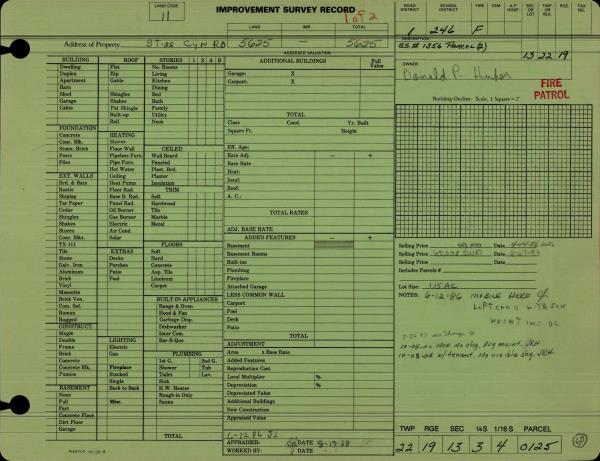 LAND CODE
11
IMPROVEMENT SURVEY RECORD
1 of 2
LAND IMP. TOTAL
Address of Property Stiss Cyn Rd 5625 — 5625
ASSESSED VALUATION
ROAD DISTRICT SCHOOL DISTRICT FIRE CEM. A.P. HOSP. SEC. OR LOT TWP. OR BLK. RGE. TAX NO.
1 246 F
S.S.# 1356 PARCEL (2)
13 22 19
OWNER
Donald P.
FIRE PATROL
Building Outline. Scale, 1 Square = 2'
BUILDING ROOF STORIES 1 2 A B
Dwelling Flat No. Rooms
Duplex Hip Living
Apartment Gable Kitchen
Barn Dining
Shed Shingles Bed
Garage Shakes Bath
Cabin Pat Shingle Family
Built-up Utility
Roll Nook
FOUNDATION
Concrete HEATING
Conc. Blk. Stoves CEILED
Stone, Brick Floor Wall Wall Board
Posts Pipeless Furn. Paneled
Piles Pipe Furn. Plast. Bed.
Hot Water Plaster
EXT. WALLS Ceiling Insulation
Brd. & Bats Heat Pump TRIM
Rustic Floor Rad. Soft
Shiplap Base B. Rad. Hardwood
Tar Paper Panel Rad. Tile
Cedar Oil Burner Marble
Shingles Gas Burner Metal
Shakes Electric
Stucco Air Cond.
Conc. Blks. Solar
TX-111 FLOORS
Tile EXTRAS Soft
Stone Decks Hard
Galv. Iron Porches Concrete
Aluminum Patio Asp. Tile
Brick Pool Linoleum
Vinyl Carpet
Masonite
Brick Ven. BUILT-IN APPLIANCES
Com. Sel. Range & Oven
Roman Hood & Fan
Rugged Garbage Disp.
CONSTRUCT. Dishwasher
Single Inter Com.
Double LIGHTING Bar-B-Que
Frame Electric
Brick Gas PLUMBING
Concrete 1st G. 2nd G.
Concrete Blk. Fireplace Shower Tub
Pumice Stacked Toilet Lav.
Single Sink
BASEMENT Back to Back H.W. Heater
None Rough-in Only
Full Misc. Sauna
Part
Concrete Floor
Dirt Floor
Garage TOTAL
ADDITIONAL BUILDINGS Full Value
Garage: X
Carport: X
TOTAL
Class Cond. Yr. Built
Square Ft. Height
Eff. Age:
Rate Adj. — +
Base Rate
Heat:
Insul:
Roof:
A. C.:
TOTAL RATES
ADJ. BASE RATE
ADDED FEATURES — +
Basement
Basement Rooms
Built-ins
Plumbing
Fireplace
Attached Garage
LESS COMMON WALL
Carport
Pool
Deck
Patio
TOTAL
ADJUSTMENT
Area x Base Rate
Added Features
Reproduction Cost
Local Multiplier %
Depreciation %
Depreciated Value
Additional Buildings
New Construction
Appraised Value
APPRAISER: DATE 8-19-88
WORKED BY: DATE
Selling Price Date
Selling Price Date
Selling Price Date
Includes Parcels #
Lot Size: 1.15 AC
NOTES: 6-12-86 MOBILE HERE
TWP RGE SEC ¼S 1/16S PARCEL
22 19 13 3 4 0125